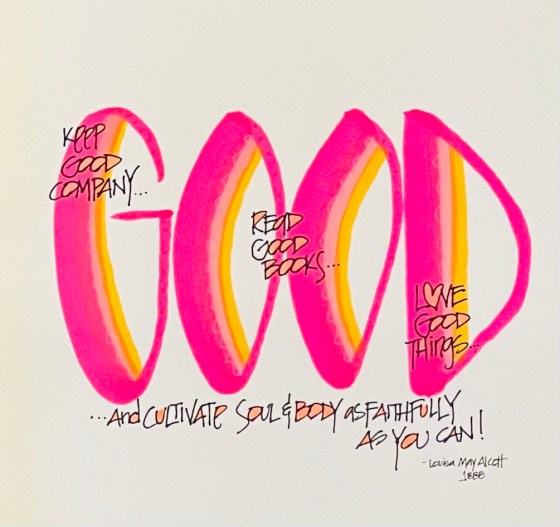 GOOD
KEEP
GOOD
COMPANY...
READ
GOOD
BOOKS...
LOVE
GOOD
THINGS...
...And CULTIVATE SOUL & BODY as FAITHFULLY
AS YOU CAN!
- Louisa May Alcott
1888